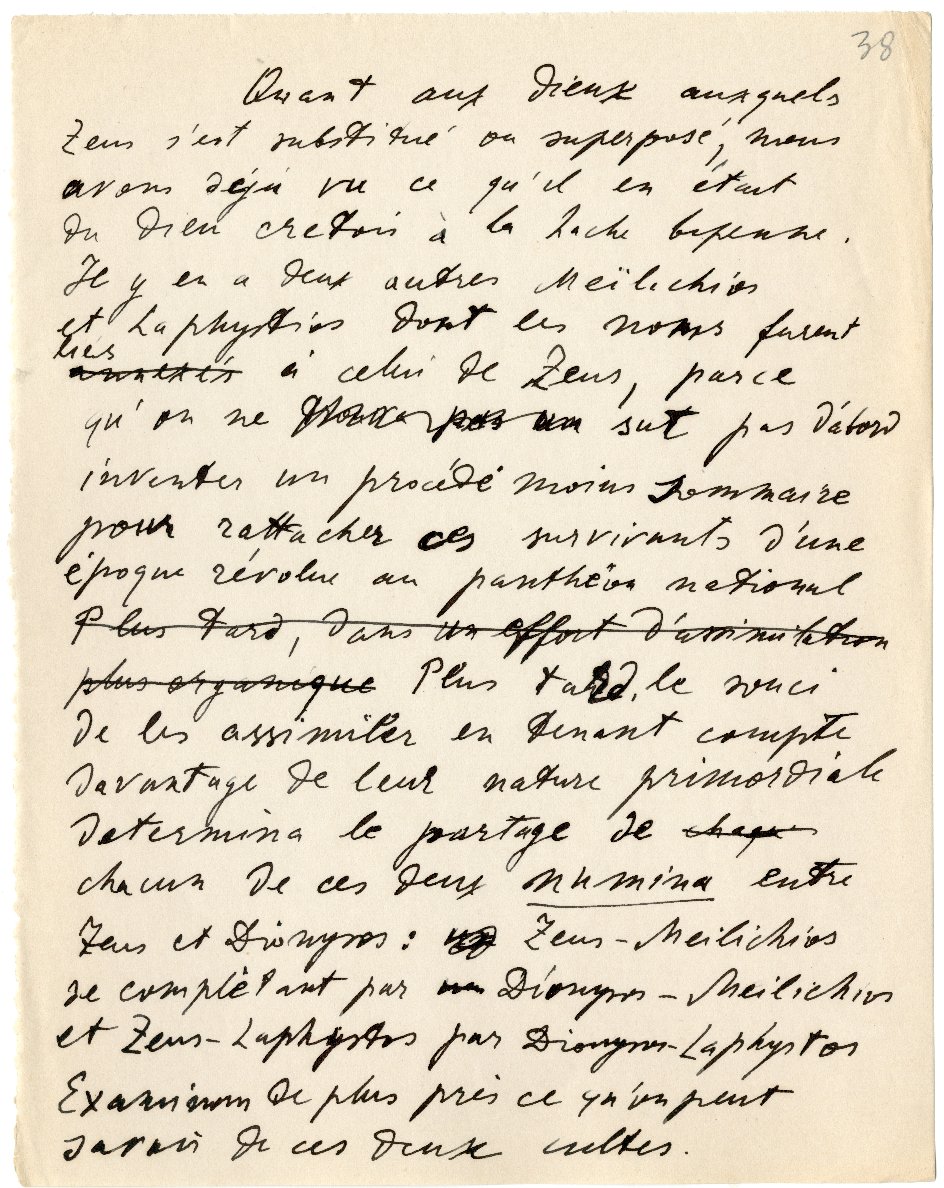 38
Quant aux dieux auxquels
Zeus s'est substitué ou superposé, nous
avons déjà vu ce qu'il en était
du dieu cretois à la hache bipenne.
Il y en a deux autres Meïlichios
et Laphystios dont les noms furent
liés
annexés à celui de Zeus, parce
qu'on ne pas un sut pas d'abord
inventer un procédé moins sommaire
pour rattacher ces survivants d'une
époque révolue au panthéon national
Plus tard, dans un effort d'assimilation
plus organique Plus tard, le souci
de les assimiler en tenant compte
davantage de leur nature primordiale
determina le partage de chaqu
chacun de ces deux numina entre
Zeus et Dionysos : Zeus-Meilichios
se complètant par un Dionysos-Meilichios
et Zeus-Laphystos par Dionysos-Laphystos
Examinons de plus près ce qu'on peut
savoir de ces deux cultes.